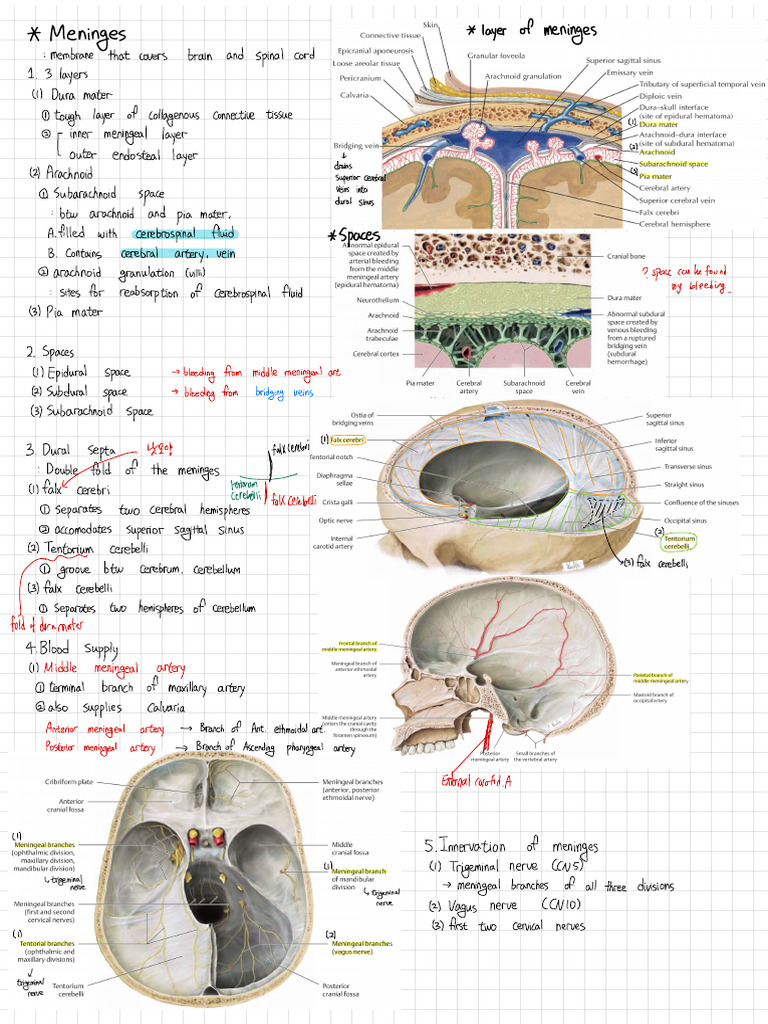 * Meninges
: membrane that covers brain and spinal cord
1. 3 layers
(1) Dura mater
① tough layer of collagenous connective tissue
② inner meningeal layer
outer endosteal layer
(2) Arachnoid
① Subarachnoid space
: btw arachnoid and pia mater,
A. filled with cerebrospinal fluid
B. Contains cerebral artery, vein
② arachnoid granulation (villi)
: sites for reabsorption of cerebrospinal fluid
(3) Pia mater
2. Spaces
(1) Epidural space → bleeding from middle meningeal art
(2) Subdural space → bleeding from bridging veins
(3) Subarachnoid space
3. Dural septa
: Double fold of the meninges
(1) falx cerebri
① separates two cerebral hemispheres
② accomodates superior sagittal sinus
(2) Tentorium cerebelli
① groove btw cerebrum, cerebellum
(3) falx cerebelli
① separates two hemispheres of cerebellum
fold of dura mater
falx cerebri
tentorium
cerebelli
falx cerebelli
4. Blood supply
(1) Middle meningeal artery
① terminal branch of maxillary artery
② also supplies calvaria
Anterior meningeal artery → Branch of Ant. ethmoidal art.
Posterior meningeal artery → Branch of Ascending pharyngeal artery
* layer of meninges
Skin
Connective tissue
Epicranial aponeurosis
Loose areolar tissue
Pericranium
Calvaria
Bridging vein
↓
drains
superior cerebral
veins into
dural sinus
Granular foveola
Arachnoid granulation
Superior sagittal sinus
Emissary vein
Tributary of superficial temporal vein
Diploic vein
Dura–skull interface
(site of epidural hematoma)
(1) Dura mater
Arachnoid–dura interface
(site of subdural hematoma)
(2) Arachnoid
Subarachnoid space
(3) Pia mater
Cerebral artery
Superior cerebral vein
Falx cerebri
Cerebral hemisphere
* Spaces
Abnormal epidural
space created by
arterial bleeding
from the middle
meningeal artery
(epidural hematoma)
Neurothelium
Arachnoid
Arachnoid
trabeculae
Cerebral cortex
Pia mater
Cerebral
artery
Subarachnoid
space
Cerebral
vein
Cranial bone
Dura mater
Abnormal subdural
space created by
venous bleeding
from a ruptured
bridging vein
(subdural
hemorrhage)
? space can be found
by bleeding.
Ostia of
bridging veins
(1) Falx cerebri
Tentorial notch
Diaphragma
sellae
Crista galli
Optic nerve
Internal
carotid artery
Superior
sagittal sinus
Inferior
sagittal sinus
Transverse sinus
Straight sinus
Confluence of the sinuses
Occipital sinus
(2) Tentorium
cerebelli
→ (3) falx cerebelli
Frontal branch of
middle meningeal artery
Meningeal branch of
anterior ethmoidal
artery
Middle meningeal artery
(enters the cranial cavity
through the
foramen spinosum)
Parietal branch of
middle meningeal artery
Mastoid branch of
occipital artery
Posterior
meningeal artery
Small branches of
the vertebral artery
External carotid A
Cribriform plate
Anterior
cranial fossa
(1)
Meningeal branches
(ophthalmic division,
maxillary division,
mandibular division)
↳ trigeminal
nerve
Meningeal branches
(first and second
cervical nerves)
(1)
Tentorial branches
(ophthalmic and
maxillary divisions)
↓
trigeminal
nerve
Tentorium
cerebelli
Meningeal branches
(anterior, posterior
ethmoidal nerve)
Middle
cranial fossa
(1)
Meningeal branch
of mandibular
division
↳ trigeminal
nerve
(2)
Meningeal branches
(vagus nerve)
Posterior
cranial fossa
5. Innervation of meninges
(1) Trigeminal nerve (CN5)
→ meningeal branches of all three divisions
(2) Vagus nerve (CN10)
(3) first two cervical nerves